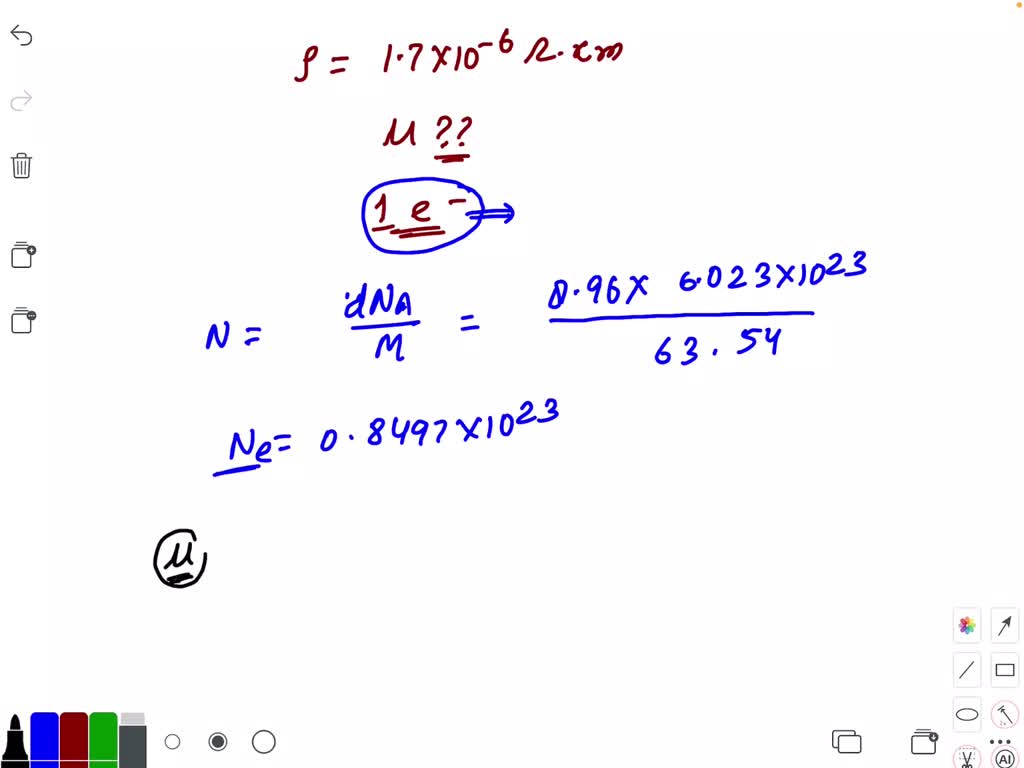 ρ = 1.7×10⁻⁶ Ω·cm
μ ??
1 e⁻ ⇒
N = dNA/M = 8.96× 6.023×10²³/63.54
Ne = 0.8497×10²³
μ
AI